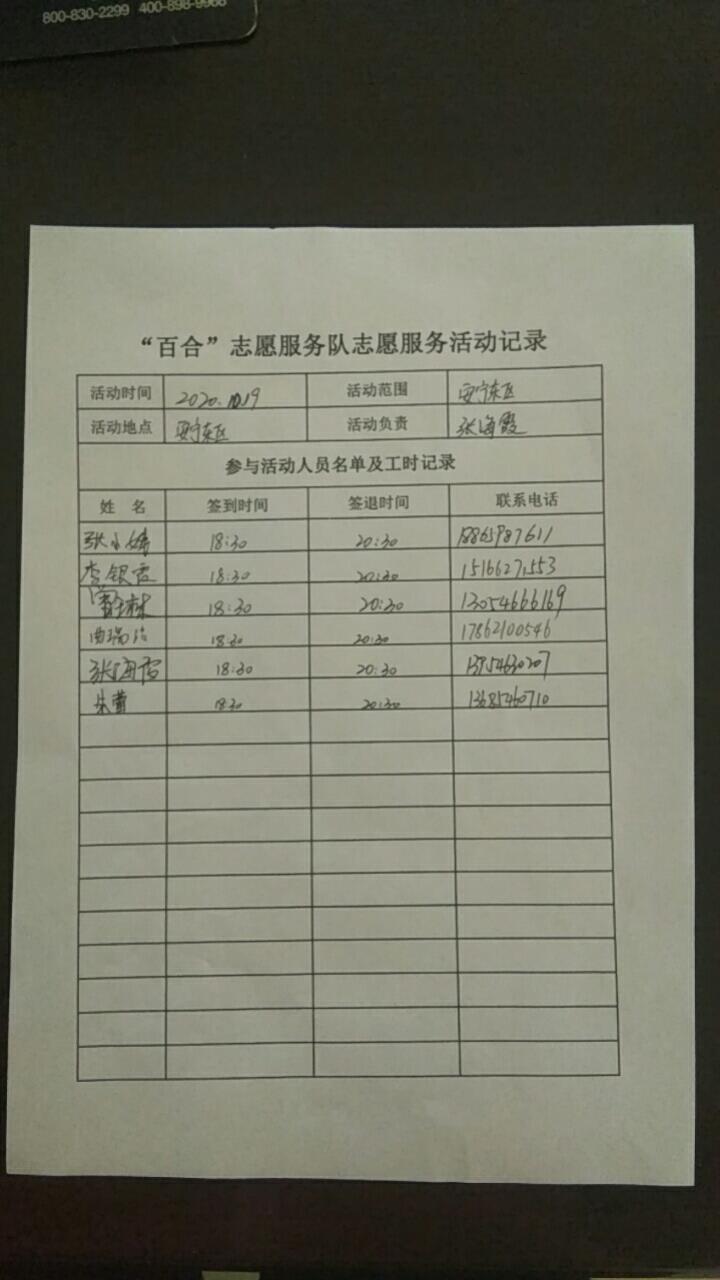 800-830-2299 400-898-9968
“百合”志愿服务队志愿服务活动记录
活动时间 2020.10.19 活动范围 安宁东区
活动地点 安宁东区 活动负责 张海霞
参与活动人员名单及工时记录
姓 名 签到时间 签退时间 联系电话
张小婧 18:30 20:30 18865987611
李银霞 18:30 20:30 15166271553
18:30 20:30 13054666169
曲瑞洁 18:30 20:30 17862100546
张海霞 18:30 20:30 13954630207
朱萱 18:30 20:30 13685460710